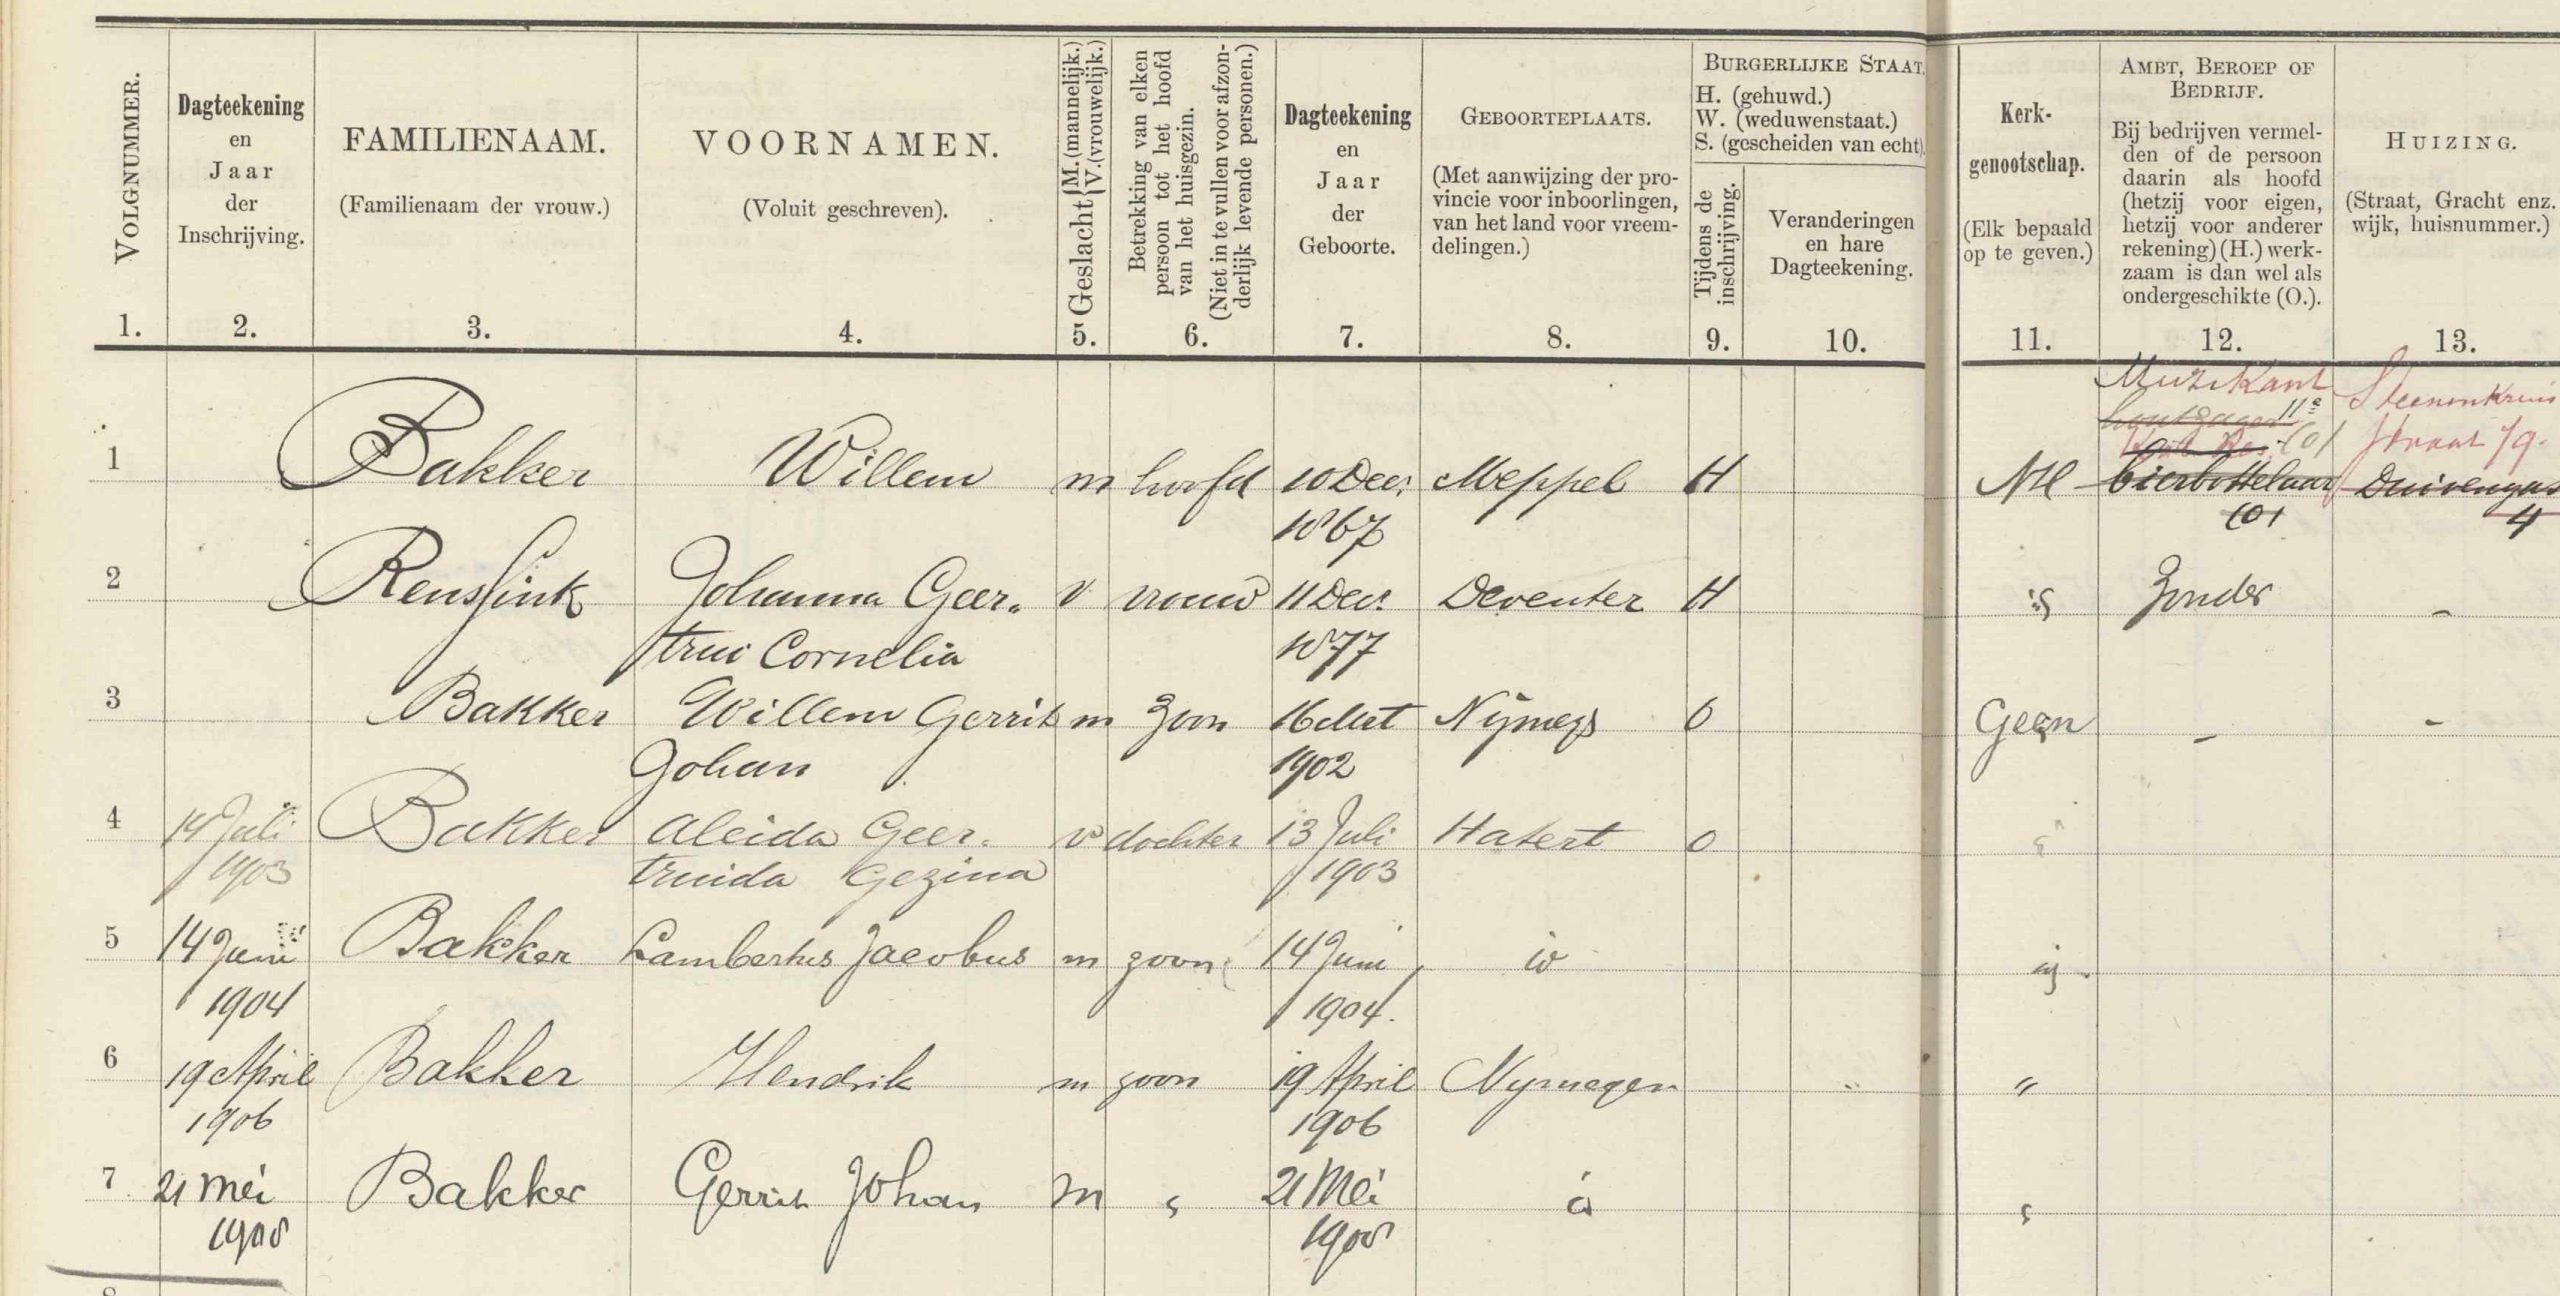 VOLGNUMMER.
1.
Dagteekening
en
Jaar
der
Inschrijving.
2.
FAMILIENAAM.
(Familienaam der vrouw.)
3.
VOORNAMEN.
(Voluit geschreven).
4.
Geslacht {M. (mannelijk.)
V. (vrouwelijk.)
5.
Betrekking van elken
persoon tot het hoofd
van het huisgezin.
(Niet in te vullen voor afzon-
derlijk levende personen.)
6.
Dagteekening
en
Jaar
der
Geboorte.
7.
GEBOORTEPLAATS.
(Met aanwijzing der pro-
vincie voor inboorlingen,
van het land voor vreem-
delingen.)
8.
BURGERLIJKE STAAT.
H. (gehuwd.)
W. (weduwenstaat.)
S. (gescheiden van echt).
Tijdens de
inschrijving.
9.
Veranderingen
en hare
Dagteekening.
10.
Kerk-
genootschap.
(Elk bepaald
op te geven.)
11.
AMBT, BEROEP OF
BEDRIJF.
Bij bedrijven vermel-
den of de persoon
daarin als hoofd
(hetzij voor eigen,
hetzij voor anderer
rekening) (H.) werk-
zaam is dan wel als
ondergeschikte (O.).
12.
HUIZING.
(Straat, Gracht enz.
wijk, huisnummer.)
13.
Muzikant Steenenkruis
straat 79.
1 Bakker Willem m hoofd 10 Dec. Meppel H NH bierbottelaar Duivengas
1867 (O) 4
2 Renssink Johanna Geer- v vrouw 11 Dec. Deventer H " Zonder -
trui Cornelia 1877
3 Bakker Willem Gerrit m zoon 16 Mrt Nijmegs O Geen - -
Johan 1902
4 14 Juli Bakker Aleida Geer- v dochter 13 Juli Hatert O "
1903 truida Gezina 1903
5 14 Juni Bakker Lambertus Jacobus m zoon 14 Juni id
1904 1904.
6 19 April Bakker Hendrik m zoon 19 April Nymegen "
1906 1906
7 21 Mei Bakker Gerrit Johan m " 21 Mei "
1908 1908
8